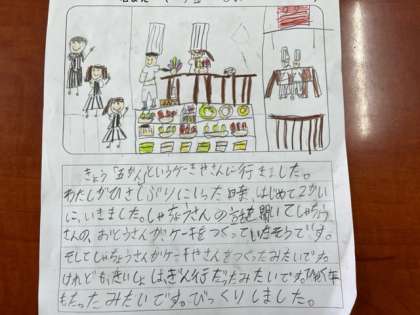 きょう「五かん」というケーキやさんに行きました。
わたしがひさしぶりにいった時、はじめて2かい
に、いきました。しゃちょうさんの話を聞いてしゃちょう
さんの、おとうさんが、ケーキをつくっていたそうです。
そしてしゃちょうさんがケーキやさんをつくったみたいです。
けれども、さいしょはぎん行だったみたいです。ひゃく年
もたったみたいです。びっくりしました。